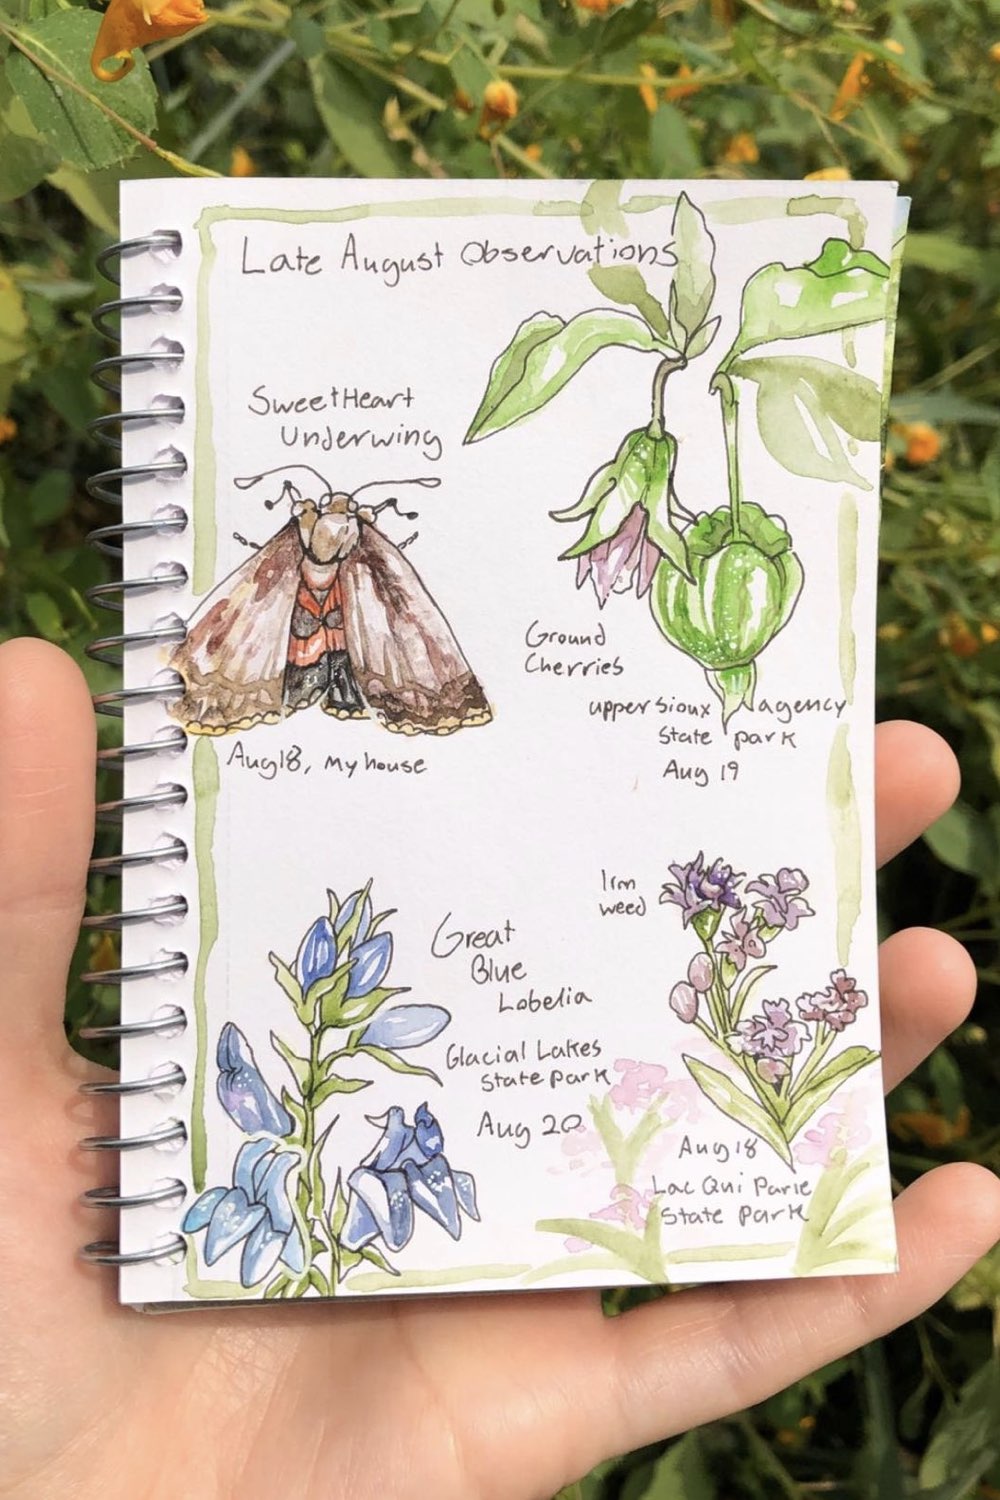 Late August Observations
SweetHeart
Underwing
Aug 18, my house
Ground
Cherries
upper Sioux agency
State park
Aug 19
Great
Blue
Lobelia
Glacial Lakes
State park
Aug 20
Irn
weed
Aug 18
Lac Qui Parle
State park